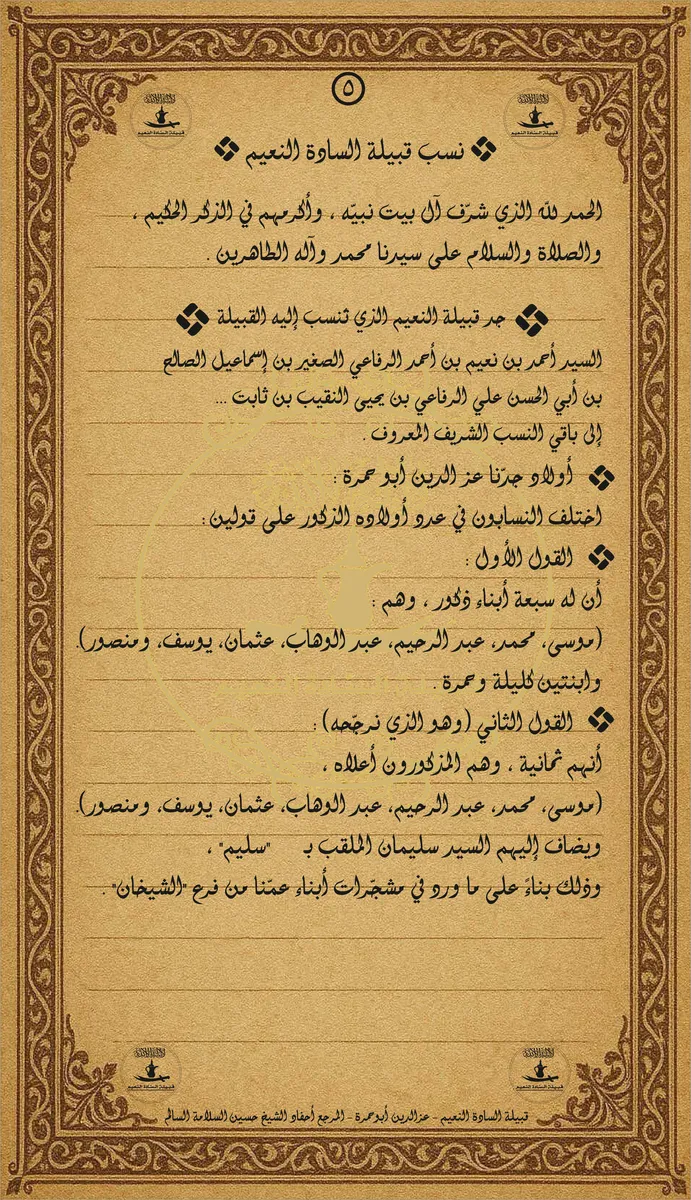 ٥
نسب قبيلة السادة النعيم
الحمد للّه الذي شرّف آل بيت نبيّه ، وأكرمهم في الذكر الحكيم ،
والصلاة والسلام على سيدنا محمد وآله الطاهرين .
جد قبيلة النعيم الذي تُنسب إليه القبيلة
السيد أحمد بن نعيم بن أحمد الرفاعي الصغير بن إسماعيل الصالح
بن أبي الحسن علي الرفاعي بن يحيى النقيب بن ثابت ...
إلى باقي النسب الشريف المعروف .
أولاد جدّنا عز الدين أبو حمرة :
اختلف النسابون في عدد أولاده الذكور على قولين :
القول الأول :
أن له سبعة أبناء ذكور ، وهم :
(موسى، محمد، عبد الرحيم، عبد الوهاب، عثمان، يوسف، ومنصور).
وابنتين كليلة وحمرة .
القول الثاني (وهو الذي نرجّحه) :
أنهم ثمانية ، وهم المذكورون أعلاه ،
(موسى، محمد، عبد الرحيم، عبد الوهاب، عثمان، يوسف، ومنصور).
ويضاف إليهم السيد سليمان الملقب بـ "سليم" ،
وذلك بناءً على ما ورد في مشجّرات أبناء عمّنا من فرع "الشيخان" .
قبيلة السادة النعيم
قبيلة السادة النعيم
قبيلة السادة النعيم
قبيلة السادة النعيم
قبيلة السادة النعيم - عزالدين أبوحمرة - المرجع أحفاد الشيخ حسين السلامة السالم